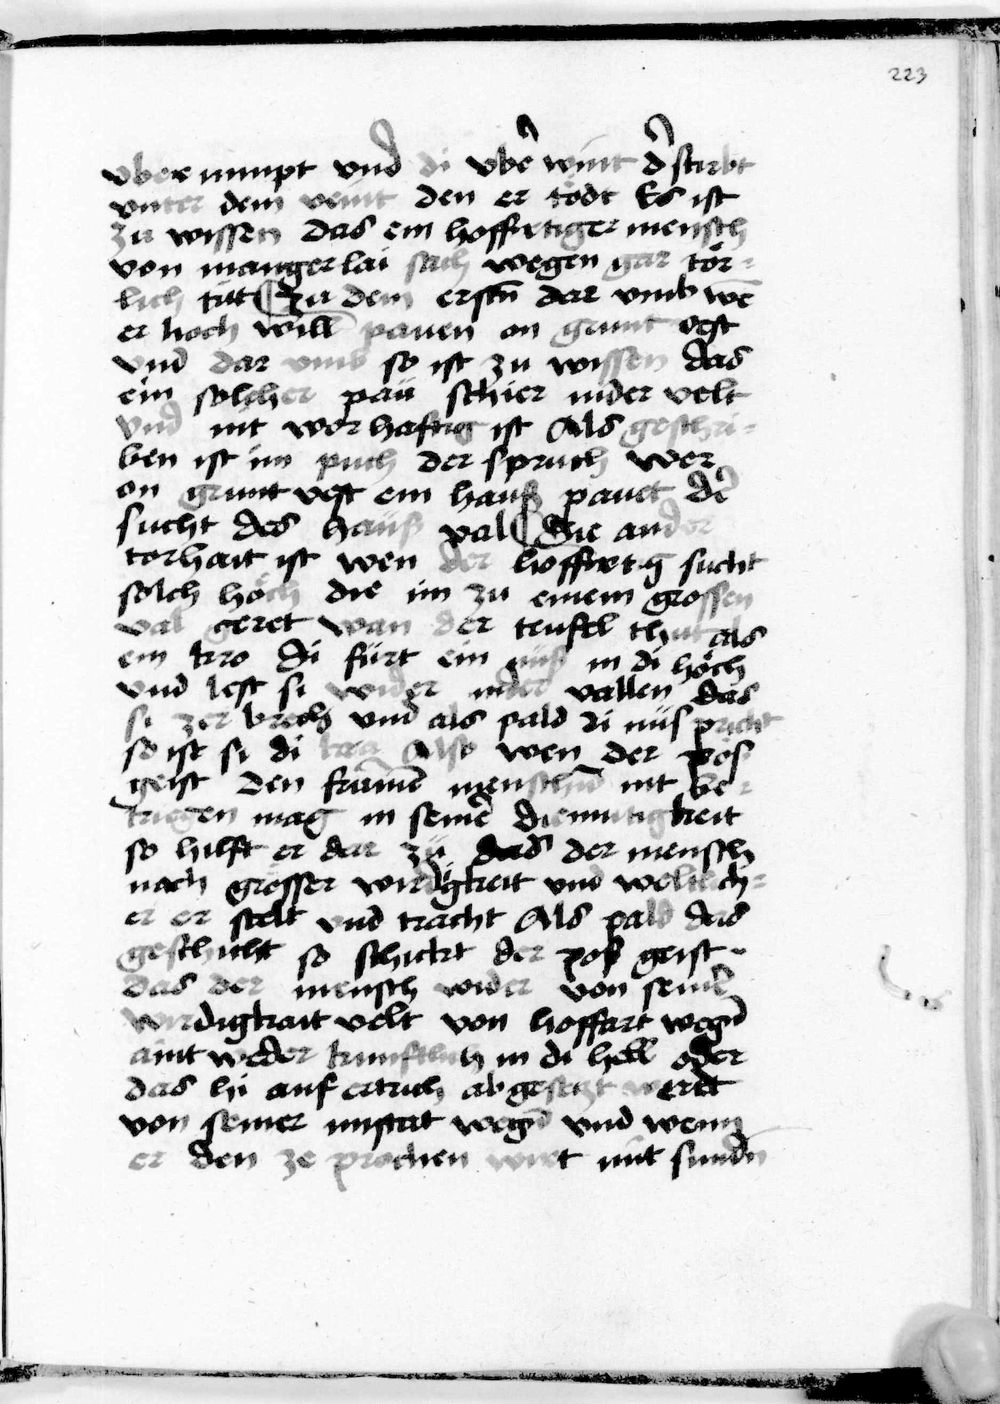 223
vber nimpt vnd di vbe͛ wint d͛ stirbt
vnter dem veint den er tödt Es ist
zu wissen das ein hoffertiger mensch
von mangerlai sach wegen gar tör-
lich tüt Zu dem erstn̄ dar vmb wē
er hoch will pauen on grunt vest
vnd dar vmb so ist zu wissen das
ein solcher paü schier nider velt
vnd nit wer haftig ist Als geschri-
ben ist im puch der spruch wer
on grunt vest ein hauß pauet d͛
sucht des hauß val Die ander
torhait ist wen der hoffertig sucht
solch höch die im zu einem grossen
val geret wan der teufel thut als
ein kro di fürt ein nüß in di höch
vnd lest si wider nider vallen das
si zer brech vnd als pald di nüs pricht
so ist si di kra Also wen der pös
geist den frūmē menschn̄ nit be-
triegen mag in seine͛ diemutigkeit
so hilft er dar zü das der mensch
nach grösser wirdigkeit vnd weltlich-
er er stelt vnd tracht Als pald das
geschicht so schickt der pos geist
das der mensch wider von seine͛
wirdigkait velt von hoffart wegn̄
aint weder kunftlich in di hell oder
das hi auf ertrich ab gesetzt werdt
von seiner mistat wegn̄ vnd wenn
er den ze prochen wirt mit sundn̄